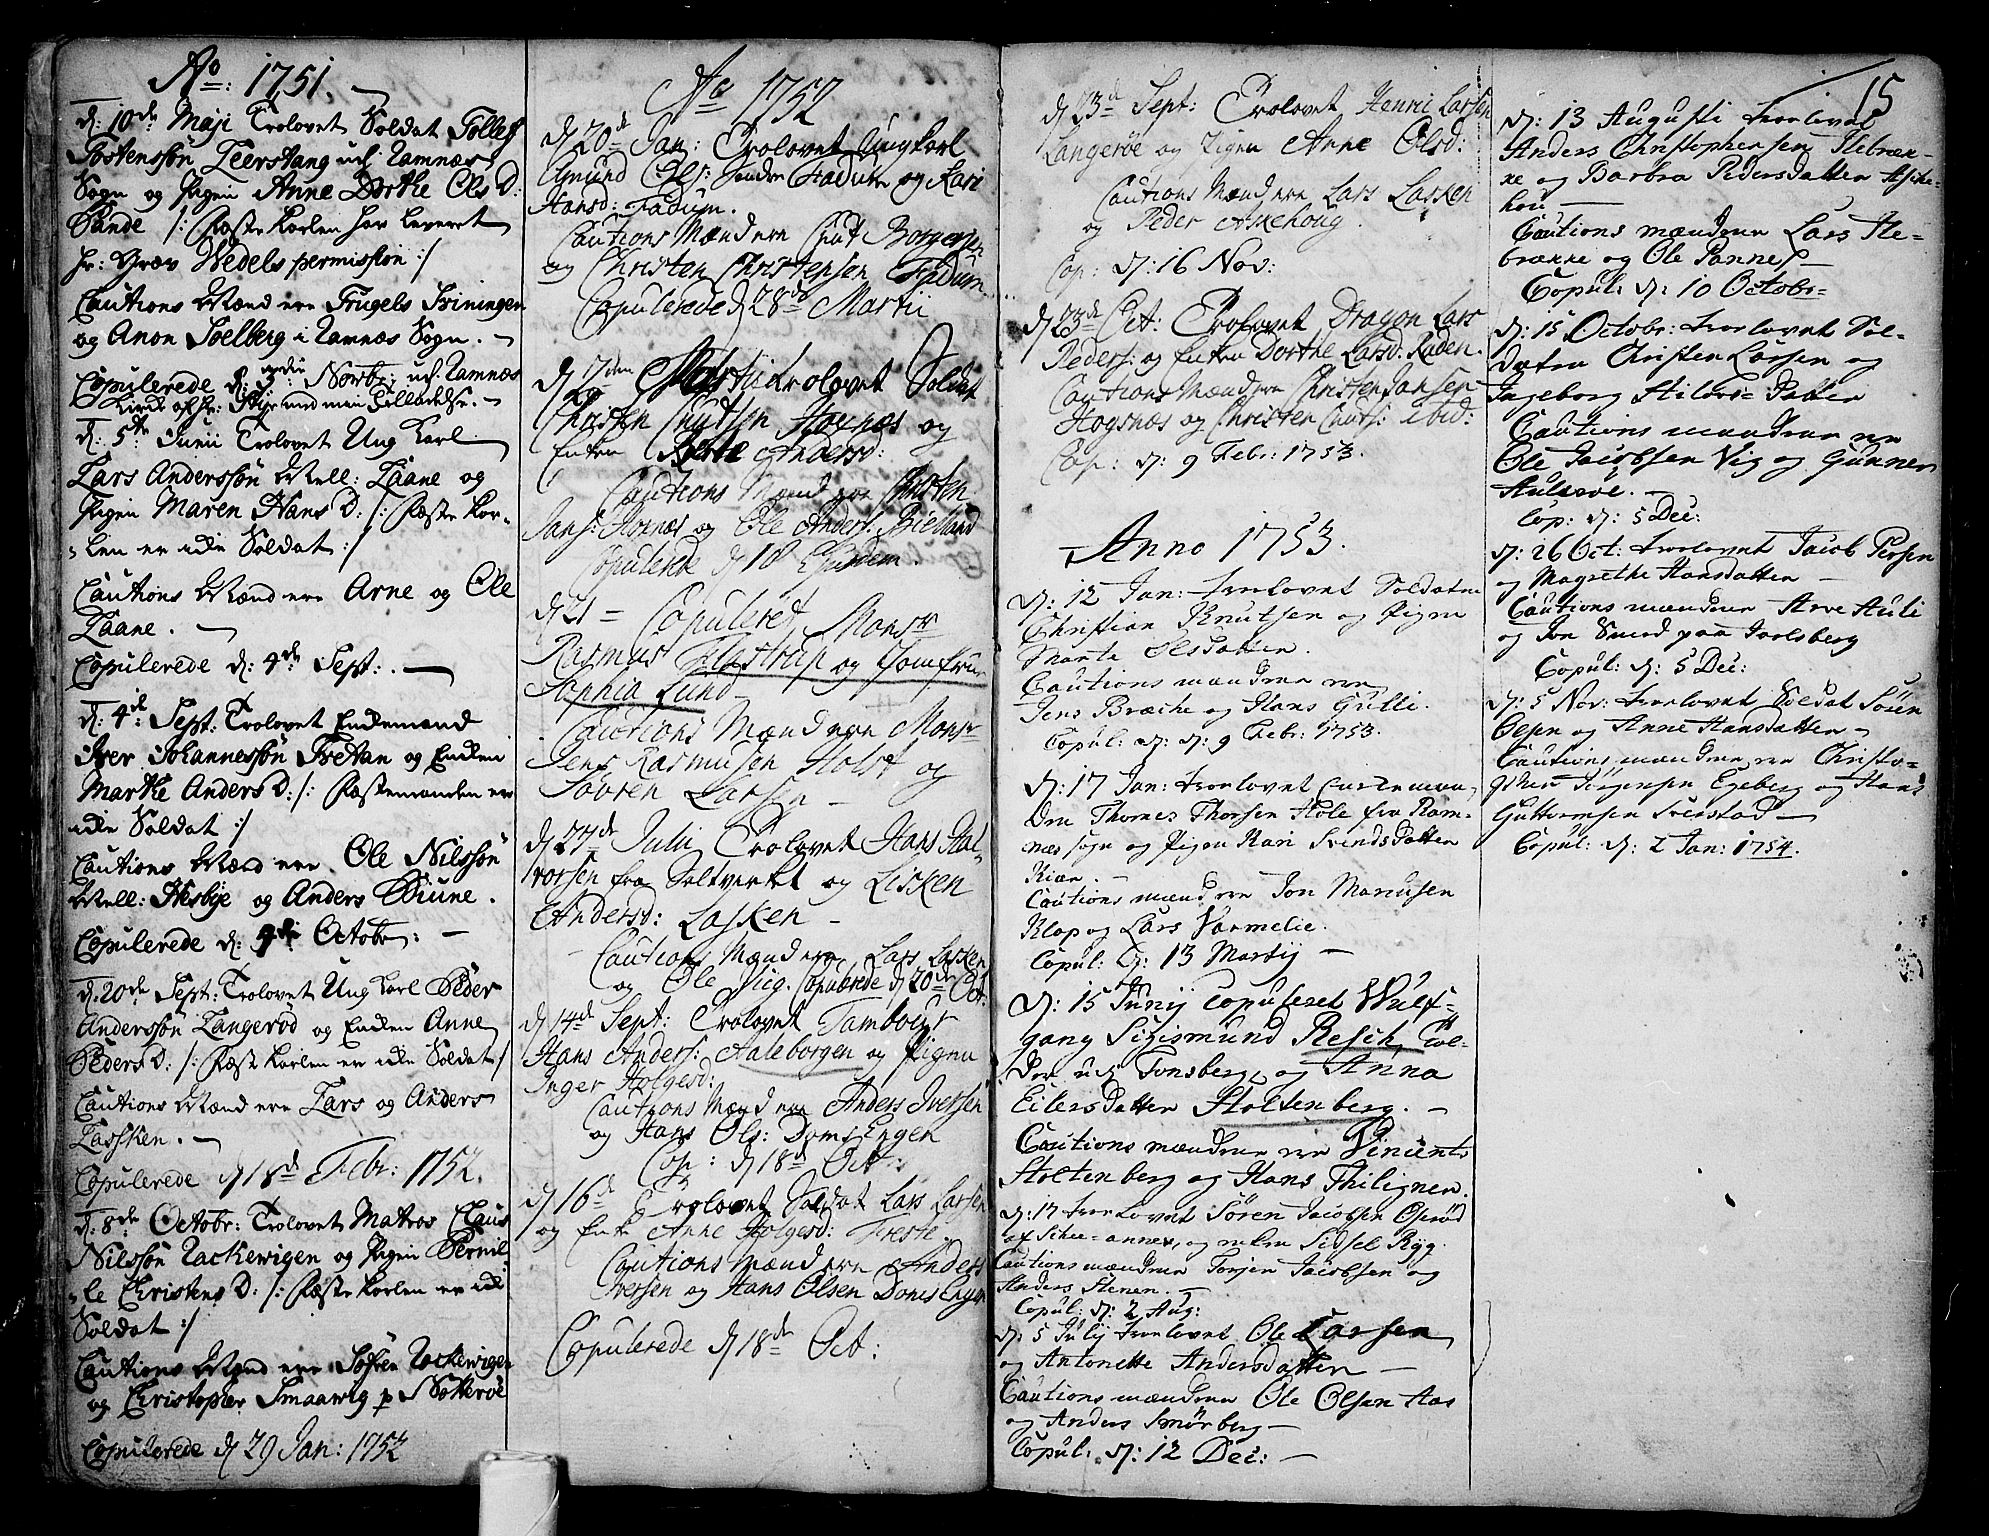 No: 1751.
d: 10de Maji Trolovet Soldat Tollef
Tostenssön Leerstang ud: Ramnæs
Sogn og Pigen Anne Dorthe Ols D:
Sande /: Fæste Karlen har leveret
hr: Grev Wedels permission :/
Cautions Mænd ere Trugels Triningen
og Anon Soelberg i Ramnæs Sogn.
Copulerede d: Novbr: ud: Ramnæs
Kirke af hr: med min Tilladelse.
d: 5te Junii Trolovet Ung Karl
Lars Anderssön Mell: Laane og
Pigen Maren Hans D: /: Fæste Kar-
len er icke Soldat :/
Cautions Mænd ere Arne og Ole
Laane.
Copulerede d: 4de Sept:
d: 4de Sept: Trolovet Enckemand
Iver Johannessön Tretan og Encken
Marthe Anders D: /: Fæstemanden er
icke Soldat :/
Cautions Mænd ere Ole Nilssön
Mell: Hesbye og Anders Biune.
Copulerede d: 4de Octobr:
d: 20de Sept: Trolovet Ung Karl Peder
Anderssön Langeröd og Encken Anne
Peders D: /: Fæste Karlen er icke Soldat :/
Cautions Mænd ere Lars og Anders
Lassken.
Copulerede d 18d Febr: 1752.
d: 8de Octobr: Trolovet Matros Claus
Nilssön Rackewigen og Pigen Pernil-
le Christens D: /: Fæste Karlen er icke
Soldat :/
Cautions Mænd ere Söfren Rackewigen
og Christopher Smaawig p Nötteröe
Copulerede d 29 Jan: 1752
Ao 1752
d 20d Jan: Trolovet Ungkarl
Amund Ols: Søndre Fadum og Kari
Hansd: Fadum.
Cautions Mænd ere Cnut Borgersen
og Christen Christensen Fadum.
Copulerede d 28d Martii
d 7den Martii Trolovet Soldat
Christen Cnutsen Hognæs og
Enken Berte Andersd:
Cautions Mænd ere Christen
Jans: Hognæs og Ole Anders: Bielland
Copulerede d 18 Ejusdem.
d 21 = Copuleret Monsr
Rasmus Flostrup og Jomfrue
Sophia Lund
Cautions Mænd ere Monsr
Jens Rasmusen Holst og
Søvren Larsen
d 27de Julii Trolovet Hans Hal-
vorsen fra Saltverket og Lisken
Andersd: Lasken
Cautions Mænd ere Lars Lasken
og Ole Vig. Copulerede d 20de Oct:
d 14d Sept: Trolovet Tambour
Hans Anders: Aaleborgen og Pigen
Inger Holgesd:
Cautions Mænd ere Anders Iversen
og Hans Ols: Doms Engen
Cop: d 18d Oct:
d 16de Trolovet Soldat Lars Larsen
og Enk: Anne Holgesd: Treste.
Cautions Mænd ere Anders
Iversen og Hans Olsen Doms Engen
Copulerede d 18de Oct:
15
d 23d Sept: Trolovet Henric Larsen
Langeröe og Pigen Anne Olsd:
Cautions Mænd ere Lars Lasken
og Peder Askehoug.
Cop: d: 16 Nov:
d 23de Oct: Trolovet Dragon Lars
Peders: og Enken Dorthe Larsd: Raden.
Cautions Mænd ere Christen Jansen
Hogsnæs og Christen Cnuts: ibid:
Cop: d: 9 Febr: 1753.
Anno 1753.
d: 12 Jan: Trolovet Soldaten
Christian Knutsen og Pigen
Marte Olsdatter.
Cautions mændene ere
Jens Bræche og Hans Gulli.
Copul: d: d: 9 Febr: 1753.
d: 17 Jan: Trolovet Enckeman-
den Thomes Thorsen Hole fra Ram-
næs sogn og Pigen Kari Svends Datter
Kiær.
Cautions mænd ere Jon Manusen
Klop og Lars Varmelie.
Copul: d: 13 Martij
d: 15 Junij Copuleret Wulf-
gang Sigismund Resch, Tol-
der ud: Tonsberg, og Anna
Eilersdatter Stoltenberg.
Cautions mændene ere Vincents
Stoltenberg og Hans Thilignen.
d: 17 Trolovet Sören Jacobsen Oseröd
af Schee=annex, og enken Sidsel Ryg.
Cautions mændene Torjer Jacobsen og
Anders Stenen.
Copul: d: 2 Aug:
d: 5 Julij Trolovet Ole Larsen
og Antonette Andersdatter
Cautions mændene Ole Olsen Aas
og Anders Smörberg
Copul: d: 12 Dec:
d: 13 Augusti Trolovet
Anders Christophersen Flebræk-
ke og Barbra Pedersdatter Aske-
hou
Cautions mændene Lars Fle-
brække og Ole Sannes
Copul: d: 10 Octobr:
d: 15 Octobr: Trolovet Sol-
daten Christen Larsen og
Ingeborg Hildvs= Datter
Cautions mændene ere
Ole Jacobsen Vig og Gunner
Aulseröe.
Cop: d: 5 Dec:
d: 26 Oct: Trolovet Jacob Persen
og Magrethe Hansdatter
Cautions mændene Arve Auli
og Jon Smed paa Jarlsberg
Copul: d: 5 Dec:
d: 5 Nov: Trolovet Soldat Sören
Olsen og Anne Hansdatter
Cautions mændene ere Christo-
pher Jörgensen Egeberg og Hans
Guttormsen Sverstad
Copul: d: 2 Jan: 1754.